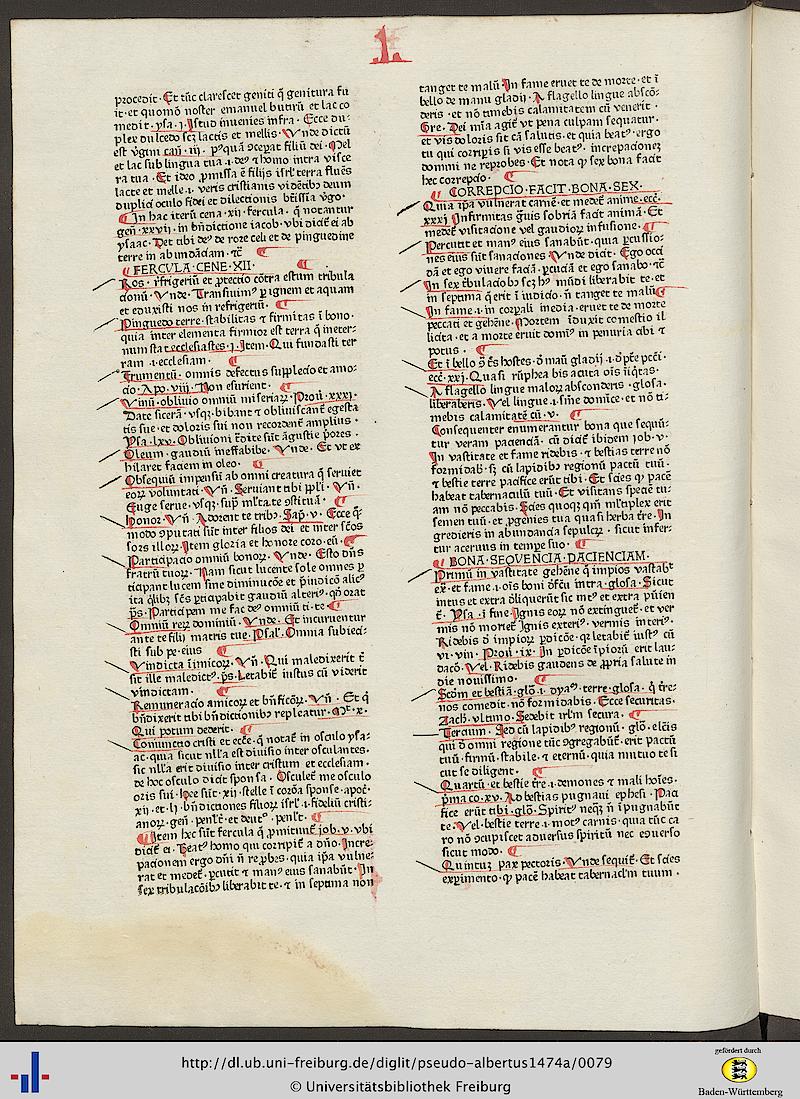 L
procedit. Et tūc clarescet geniti q̄ genitura fu
it. et quomō noster emanuel butirū et lac co
medit. ysa. j. Istud inuenies infra. Ecce du-
plex dulcedo scꝫ lactis et mellis. Vnde dictū
est v̄gini cāt. iiij. pꝰquā ↄceꝑat filiū dei. Mel
et lac sub lingua tua. i. deꝰ ⁊ homo intra visce
ra tua. Et ideo ꝓmissa ē filijs isrl̄ terra fluēs
lacte et melle. i. veris cristianis vidētibꝫ deum
duplici oculo fidei et dileccionis btīssīa v̄go.
In hac iterū cena. xij. fercula. q̄ notantur
gen̄. xxvij. in bn̄dictione iacob. vbi dicit̄ ei ab
ysaac. Det tibi deꝰ de rore celi et de pinguedine
terre in abundāciam. ⁊c̄
FERCVLA. CENE. XII.
Ros. r̄frigeriū et ꝓtectio cōtra estum tribula
cionū. Vnde. Transiuimꝰ ꝑ ignem et aquam
et eduxisti nos in refrigeriū.
Pinguedo terre. stabilitas ⁊ firmitas ī bono.
quia inter elementa firmior est terra q̄ ineter-
num stat ecclesiastes. j. Item. Qui fundasti ter
ram. i. ecclesiam.
Frumentū. omnis defectus supplecio et amo-
cio. Apo. viij. Non esurient.
Vinū. obliuio omniū miseriaꝝ. Prou̇. xxxj.
Date sicerā. vsqꝫ. bibant ⁊ obliuiscant̄ egesta
tis sue. et doloris sui non recordent̄ amplius.
Ysa. lxv. Obliuioni t̄dite sūt āgustie p̄ores.
Oleum. gaudiū ineffabibe. Vnde. Et vt ex
hilaret faciem in oleo.
Obsequiū impensū ab omni creatura q̄ seruiet
eoꝝ voluntati. Vn̄. Seruiant tibi ppl̄i. Vn̄.
Euge serue. vsqꝫ. suꝑ ml̄ta te ↄstituā.
Honor. Vn̄. Adorent te tribꝰ. Sap̄. v. Ecce q̄-
modo ↄputati sūt inter filios dei. et inter sc̄os
sors illoꝝ. Item gloria et honore coro. eū.
Participacio omniū bonoꝝ. Vnde. Esto dn̄s
fratrū tuoꝝ. Nam sicut lucente sole omnes ꝑ
ticipant lucem sine diminucōe et p̄iudicō alicꝰ
ita q̄libꝫ sc̄s ꝑticipabit gaudiū alteriꝰ. qd̄ orat
p̄s. Participem me fac deꝰ omniū ti. te
Omniū reꝝ dominiū. Vnde. Et incuruentur
ante te filij matris tue. Psal̄. Omnia subieci-
sti sub pe. eius
Vindicta īimicoꝝ. Vn̄. Qui maledixerit t̄
sit ille maledictꝰ. p̄s. Letabit̄ iustus cū viderit
vindictam.
Remuneracio amicoꝝ et bn̄ficoꝝ. Vn̄. Et q̄
bn̄dixerit tibi bn̄dictionibꝫ repleatur. Mt̄. x.
Qui potum dederit.
Coniunctio cristi et ecce. q̄ notat̄ in osculo ysa-
ac. quia sicut nll̄a est diuisio inter osculantes.
sic nll̄a erit diuisio inter cristum et ecclesiam.
de hoc osculo dicit sponsa. Osculet̄ me osculo
oris sui. Hee sūt. xij. stelle ī corōa sponse. apoc̄.
xij. et. h. bn̄dictiones filioꝝ isrl̄. i. fideliū cristi-
anoꝝ. gen̄. penlt̄. et deut̄. penlt̄.
Item hec sūt fercula q̄ ꝓmittunt̄ job. v. vbi
dicit̄ ei. Beatꝰ homo qui corripit̄ a dn̄o. Incre-
pacionem ergo dn̄i n̄ reꝓbes. quia ip̄a vulne-
rat et medet̄. ꝑcutit ⁊ manꝰ eius sanabūt. In
sex tribulacōibꝫ liberabit te. ⁊ in septima non
tanget te malū. In fame eruet te de morte. et ī
bello de manu gladij. A flagello lingue abscō-
deris. et nō timebis calamitatem cū venerit.
Gre. Dei mīa agit̄ vt pena culpam sequatur.
et vis doloris sit cā salutis. et quia beatꝰ. ergo
tu qui corriperis si vis esse beatꝰ. increpacionez
domini ne reprobes. Et nota qꝫ sex bona facit
hec correpcio.
CORREPCIO. FACIT. BONA. SEX.
Quia ip̄a vulnerat carnē. et medet̄ anime. ecc̄.
xxxj. Infirmitas g̈uis sobriā facit animā. Et
medet̄ visitacione vel gaudioꝝ infusione.
Percutit et manꝰ eius sanabūt. quia ꝑcussio-
nes eius sūt sanaciones. Vnde dicit. Ego occi
dā et ego viuere faciā. ꝑcuciā et ego sanabo. ⁊c̄
In sex t̄bulaciōibꝫ scꝫ hꝰ mūdi liberabit te. et
in septima q̄ erit ī iudicio. n̄ tanget te malū
In fame. i. in corꝑali inedia. eruet te de morte
peccati et gehēne. Mortem īduxit comestio il
licita. et a morte eruit domīꝰ in penuria cibi ⁊
potus.
Et ī bello ↄ̄ t̄s hostes. d̄ manū gladij. i. ꝓpt̄e pcc̄i.
ecc̄. xxj. Quasi rūphea bis acuta oīs iīqtas.
A flagello lingue maloꝝ absconderis. glosa.
liberaberis. Vel lingue. i. sine dōnice. et nō ti-
mebis calamitatē cū. v.
Consequenter enumerantur bona que sequū-
tur veram pacienciā. cū dicit̄ ibidem job. v.
In vastitate et fame ridebis. ⁊ bestias terre nō
formidabꝭ. sꝫ cū lapidibꝫ regionū pactū tuū.
⁊ bestie terre pacifice erūt tibi. Et scies qꝫ pacē
habeat tabernaculū tuū. Et visitans speciē tu-
am nō peccabis. Scies quoqꝫ qm̄ ml̄tiplex erit
semen tuū. et ꝓgenies tua quasi herba t̄re. In
gredieris in abundancia sepulcꝝ. sicut infer-
tur aceruus in tempe suo.
BONA. SEQVENCIA. PACIENCIAM.
Primū in vastitate gehēne q̄ impios vastabt̄
ex̄. et fame. i. oīs boni dēcū intra. glosa. Sicut
intus et extra dliquerūt sic int̄ꝰ et extra pūien
t̄. Ysa. i. fine. Ignis eoꝝ nō extinguet̄. et ver
mis nō moriet̄. Ignis exteriꝰ. vermis interiꝰ.
Ridebis d̄ impioꝝ ꝑdicōe. qꝫ letabit̄ iustꝰ cū
vi. vin. Prou̇. ix. In ꝑdicōe īpiorū erit lau-
dacō. Vel. Ridebis gaudens de ꝓpria salute in
die nouissimo.
Scd̄m et bestiā. glō. i. dyaꝰ. terre. glosa. q̄ t̄re-
nos comedit. nō formidabis. Ecce securitas.
Zach̄. vltimo. Sedebit irl̄m secura.
Tercium. Sed cū lapidibꝫ regionū. glō. elc̄is
qui d̄ omni regione tūc ↄgregabūt̄. erit pactū
tuū. firmū. stabile. ⁊ eternū. quia mutuo te si
cut se diligent.
Quartū et bestie t̄re. i. demones ⁊ mali hoīes.
p̄ma co. xv. Ad bestias pugnaui ephesi. Paci
fice erūt tibi. glō. Spiritꝰ neqꝫ n̄ īpugnabūt
te. Vel. bestie terre. i. motꝰ carnis. quia tūc ca
ro nō ↄcupiscet aduersus spiritū nec ecↄuerso
sicut modo.
Quintuꝫ pax pectoris. Vnde sequit̄. Et scies
experimento. qꝫ pacē habeat tabernacl̄m tuum.
http://dl.ub.uni-freiburg.de/diglit/pseudo-albertus1474a/0079
© Universitätsbibliothek Freiburg
gefördert durch
Baden-Württemberg